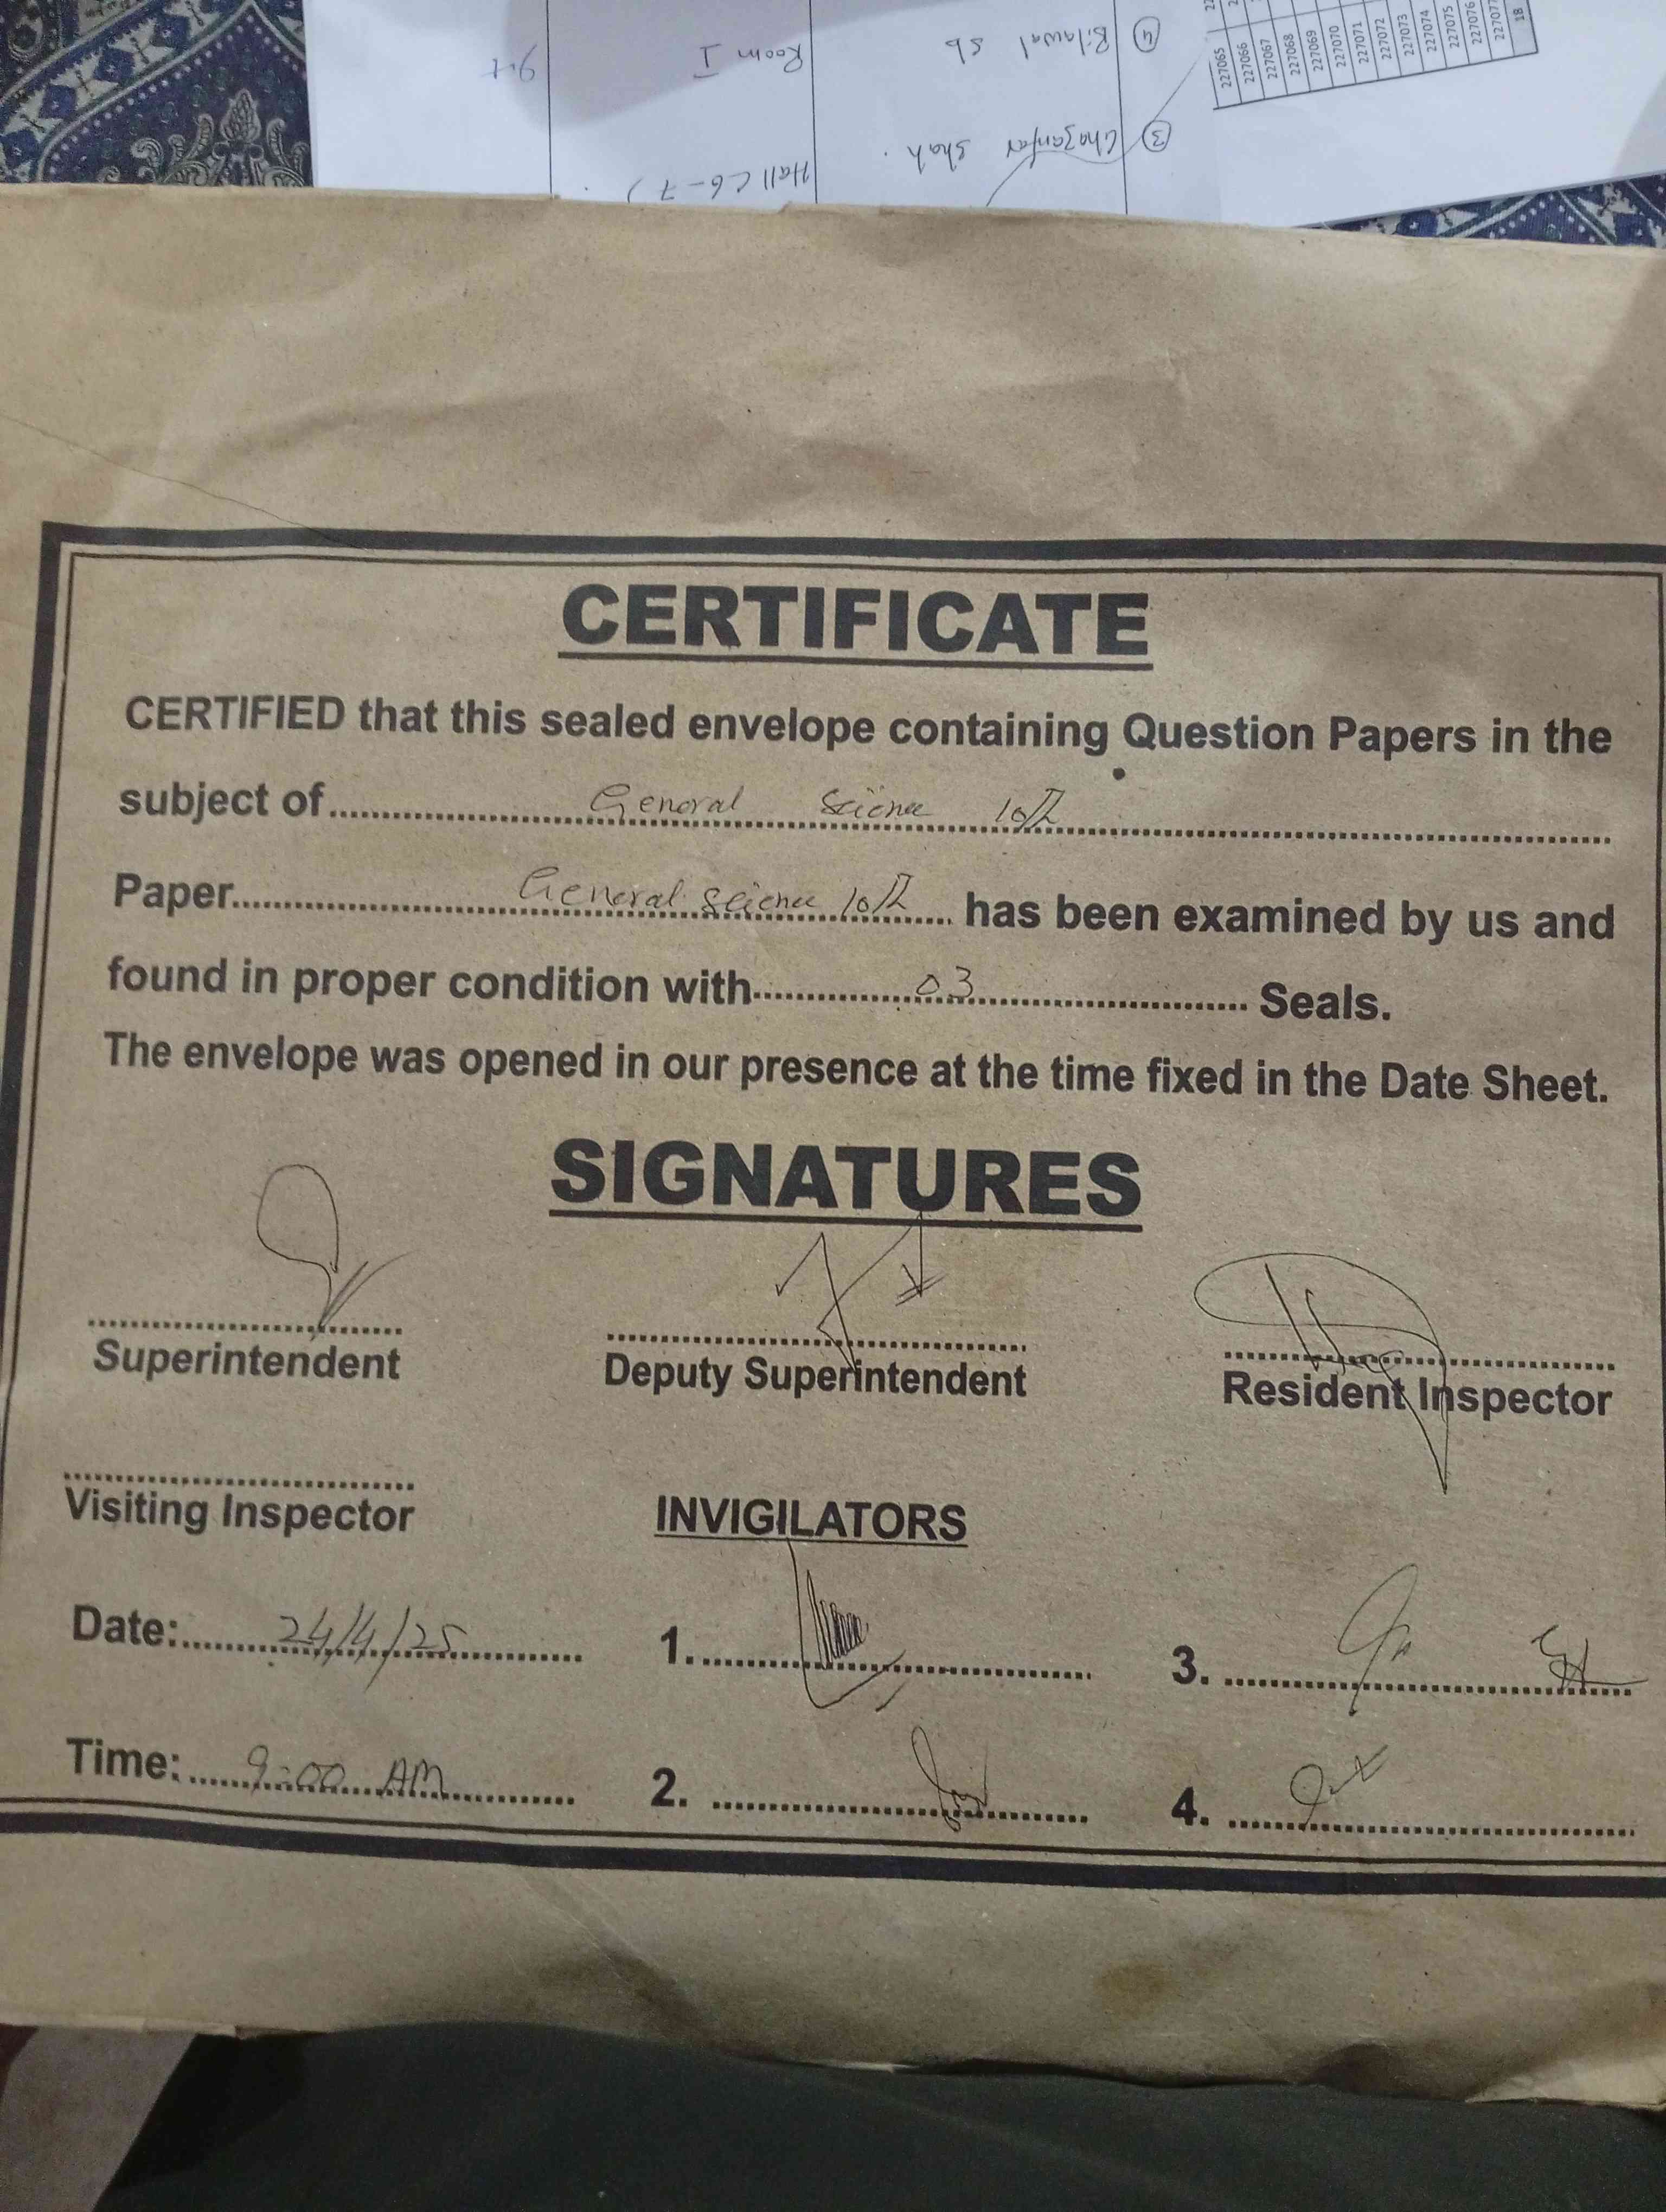 ④ Bilawal sb Room I 9th
③ Ghazanfar Shah. Hall (6-7)
227065
227066
227067
227068
227069
227070
227071
227072
227073
227074
227075
227076
227077
18
CERTIFICATE
CERTIFIED that this sealed envelope containing Question Papers in the
subject of General Science 10th
Paper General Science 10th has been examined by us and
found in proper condition with 03 Seals.
The envelope was opened in our presence at the time fixed in the Date Sheet.
SIGNATURES
Superintendent Deputy Superintendent Resident Inspector
Visiting Inspector INVIGILATORS
Date: 24/4/25 1. 3.
Time: 9:00 AM 2. 4.